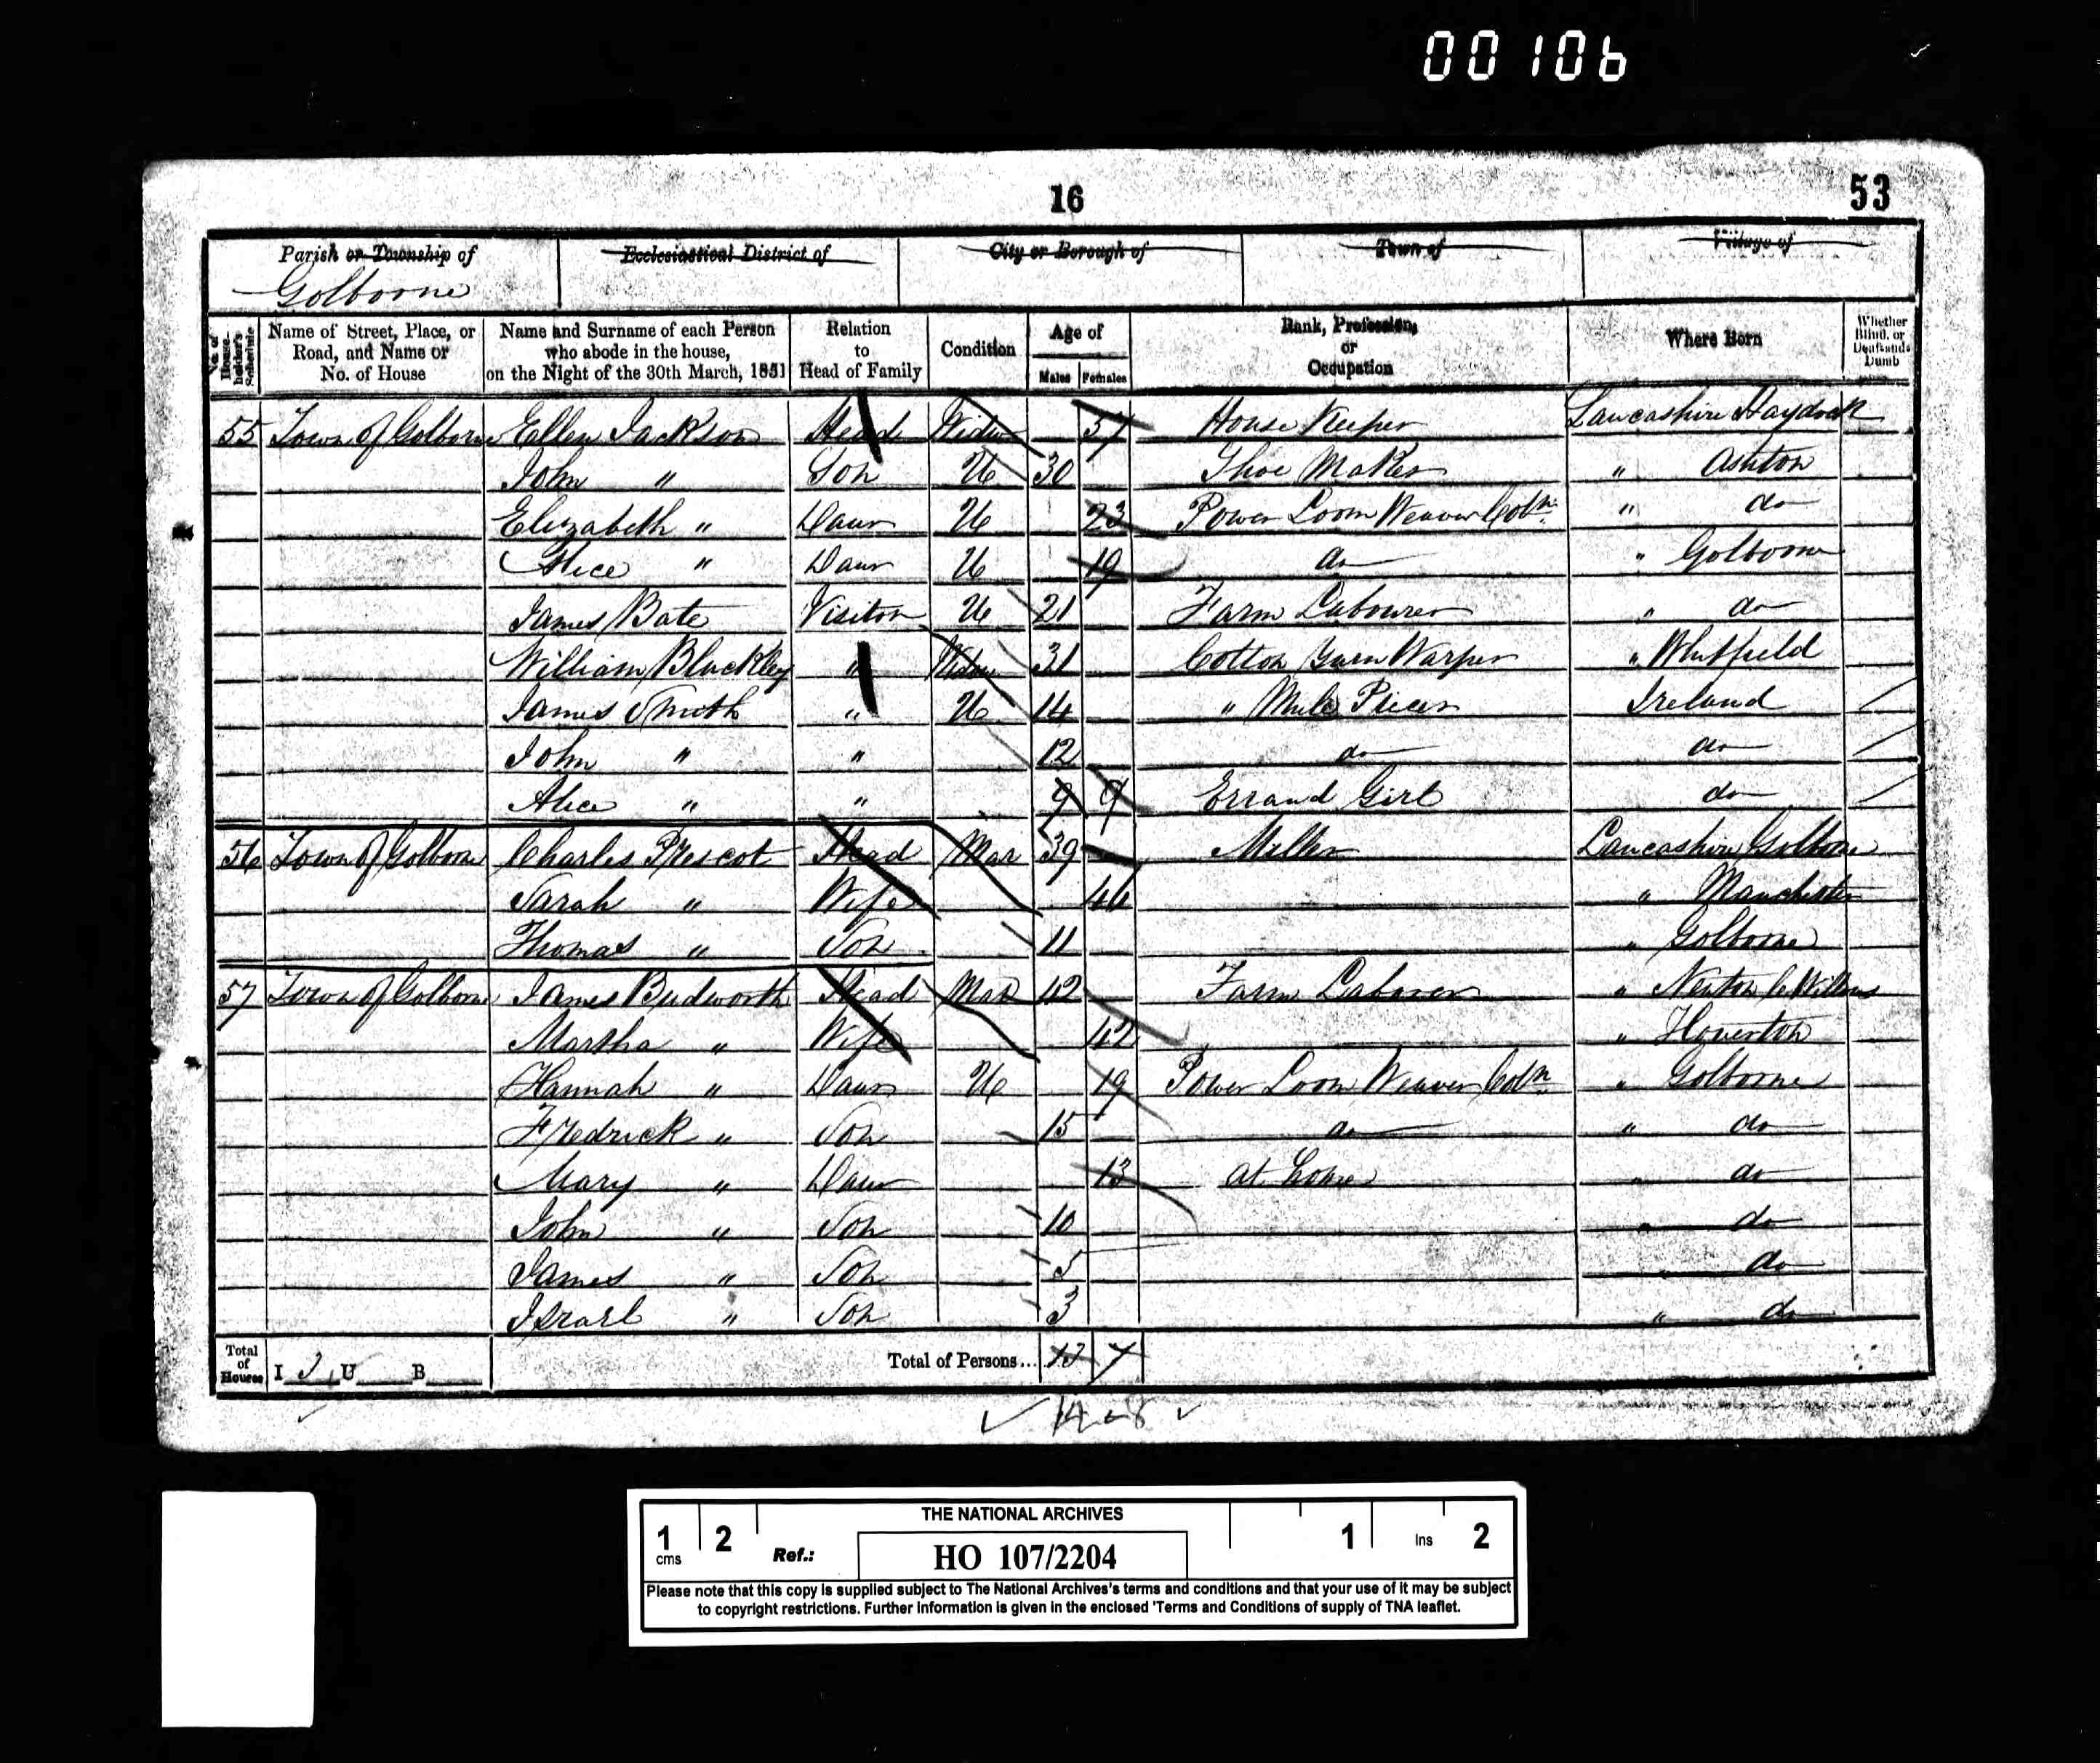 00106
16
53
Parish or Township of
Golborne
Ecclesiastical District of
City or Borough of
Town of
Village of
No. of House-holder's Schedule
Name of Street, Place, or Road, and Name or No. of House
Name and Surname of each Person who abode in the house, on the Night of the 30th March, 1851
Relation to Head of Family
Condition
Age of
Males Females
Rank, Profession, or Occupation
Where Born
Whether Blind, or Deaf and Dumb
55 Town of Golborne Ellen Jackson Head Widow 57 House Keeper Lancashire Haydock
John " Son U 30 Shoe Maker " Ashton
Elizabeth " Daur U 23 Power Loom Weaver Cotn " do
Alice " Daur U 19 do " Golborne
James Bate Visitor U 21 Farm Labourer " do
William Bluckley " 31 Cotton Yarn Warper "
James Smith " U 14 " Mule Piecer Ireland
John " " 12 do do
Alice " " 9 9 Errand Girl do
56 Town of Golborne Charles Prescot Head Mar 39 Miller Lancashire Golborne
Sarah " Wife " Manchester
Thomas " Son 11 " Golborne
57 Town of Golborne James Budworth Head Mar 42 Farm Laborer " Newton
Martha " Wife 42 "
Hannah " Daur U 19 Power Loom Weaver Cotn " Golborne
Fredrick " Son 15 do " do
Mary " Daur 13 at home " do
John " Son 10 " do
James " Son 5 " do
Israel " Son 3 " do
Total of Houses I 3 U B
Total of Persons... 13 7
THE NATIONAL ARCHIVES
1 cms 2 Ref.: HO 107/2204 1 Ins 2
Please note that this copy is supplied subject to The National Archives's terms and conditions and that your use of it may be subject
to copyright restrictions. Further information is given in the enclosed 'Terms and Conditions of supply of TNA leaflet.